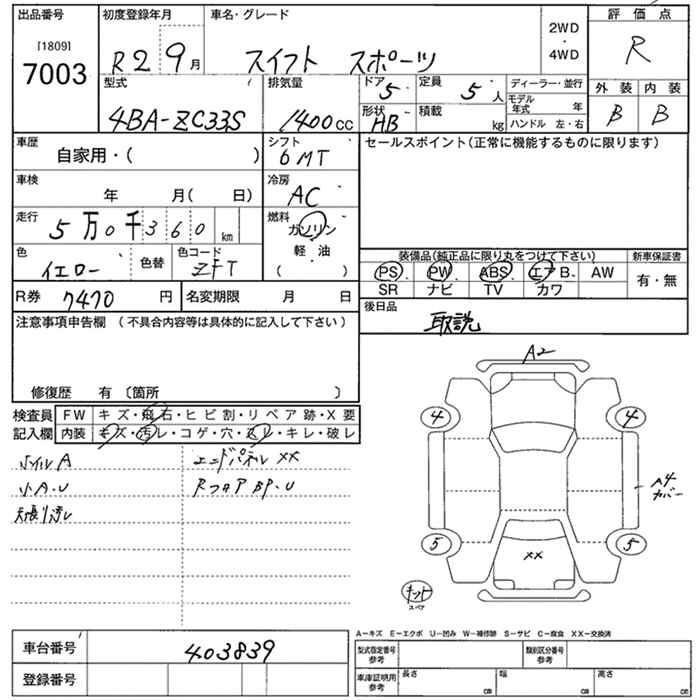 出品番号 [1809] 7003
初度登録年月 R2 9月
車名・グレード スイフト スポーツ
2WD・4WD
評価点 R
外装 B 内装 B
型式 4BA-ZC33S
排気量 1400cc
ドア 5 定員 5人
形状 HB 積載 kg
ディーラー・並行
モデル年式 年
ハンドル 左・右
車歴 自家用・( )
シフト 6MT
セールスポイント(正常に機能するものに限ります)
車検 年 月( 日)
冷房 AC
走行 5万0千360km
燃料 ガソリン 軽・油 ( )
色 イエロー 色替 色コード ZFT
装備品(純正品に限り丸をつけて下さい) 新車保証書
PS PW ABS エアB AW 有・無
SR ナビ TV カワ
R券 7470円 名変期限 月 日
後日品 取説
注意事項申告欄 (不具合内容等は具体的に記入して下さい)
修復歴 有 〔箇所 〕
検査員 FW キズ・飛石・ヒビ割・リペア跡・X要
記入欄 内装 キズ・汚レ・コゲ・穴・スレ・キレ・破レ
ホイルA エンドパネルXX
小A.U RフロアBP.U
天張リ汚レ
A2
4 4
A4 カバー
5 5
XX
キット
スペア
A-キズ E-エクボ U-凹み W-補修跡 S-サビ C-腐食 XX-交換済
車台番号 403839
型式指定番号 参考 類別区分番号 参考
登録番号
車庫証明用 参考 長さ cm 幅 cm 高さ cm